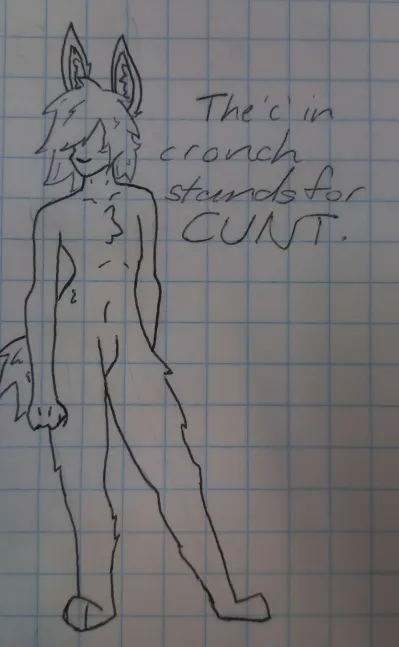 The 'c' in
cronch
stands for
CUNT.